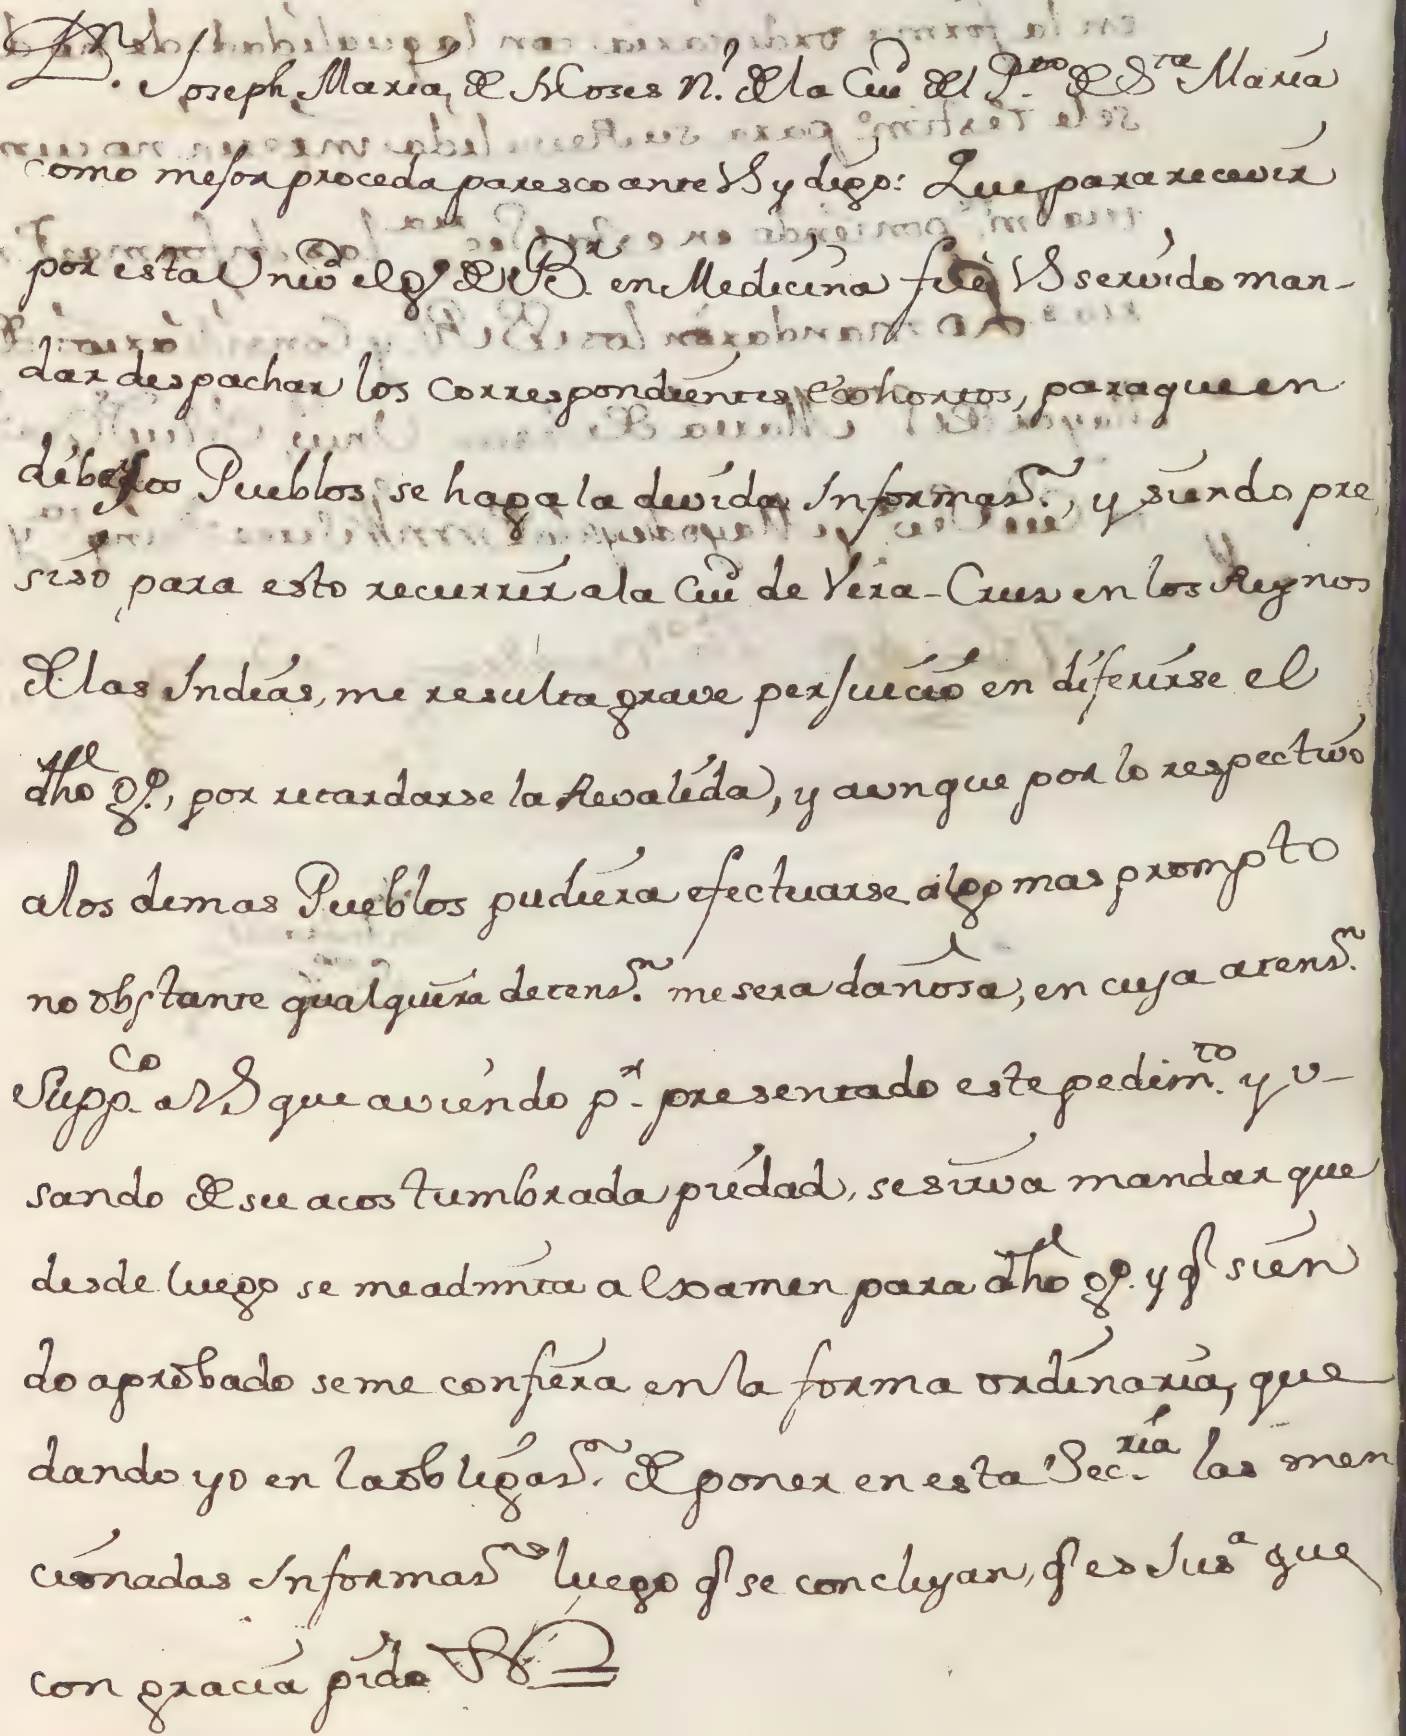 Dn. Joseph Maria de Moses N.l de la Ciud del P.to de S.ta Maria
como mejor proceda paresco ante VS y digo: Que para recevir
por esta Univd el g.o de B.r en Medicina fue VS servido man-
dar despachar los correspondientes exhortos, para que en
diversos Pueblos, se haga la devida Informas.n, y siendo pre
siso para esto recurrir a la Ciud de Vera-Cruz en los Reynos
de las Indias, me resulta grave perjuicio en diferirse el
dho g.o, por retardarse la Revalida, y aunque por lo respectivo
a los demas Pueblos pudiera efectuarse algo mas prompto
no obstante qualquiera detens.n me sera dañosa, en cuya atens.n
Supp.co a VS que aviendo p.r presentado este pedim.to y u-
sando de su acostumbrada piedad, se sirva mandar que
desde luego se me admita al examen para dho g.o y q sien
do aprobado se me confiera en la forma ordinaria, que
dando yo en la obligas.n de poner en esta Sec.ria las men
cionadas Informas.nes luego q se concluyan, q es Jus.a que
con gracia pido